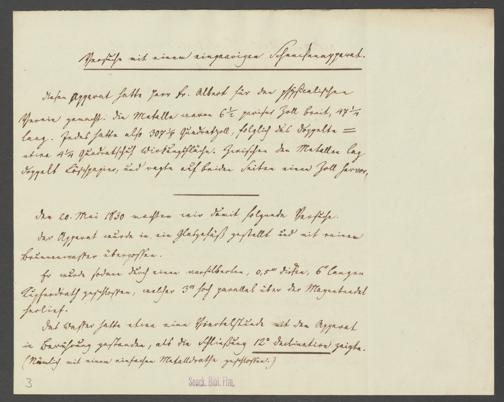 Versuche mit einem einpaarigen Schneckenapparat.
Diesen Apparat hatte Herr Fr. Albert für den physikalischen
Verein gemacht. Die Metalle waren 6 1/2 pariser Zoll breit, 47 1/4
lang. Jedes hatte also 307 1/8 Quadratzoll, folglich das doppelte =
etwa 4 1/4 Quadratschuh Wirkungsfläche. Zwischen den Metallen lag
doppelt Löschpapier, und ragte auf beiden Seiten einen Zoll hervor.
Den 20. Mai 1830 machten wir damit folgende Versuche.
Der Apparat wurde in ein Glasgefäß gestellt und mit reinem
Brunnenwasser übergossen.
Er wurde sodann durch einen 0,5''' dicken, 6' langen
Kupferdrath geschlossen, welcher 3''' hoch parallel über der Magnetnadel
herlief.
Das Wasser hatte etwa eine Viertelstunde mit dem Apparat
in Berührung gestanden, als die Schließung 12° declination zeigte.
(Nämlich mit einem einfachen Metalldrathe geschlossen.)
3
Senck. Bibl. Ffm.